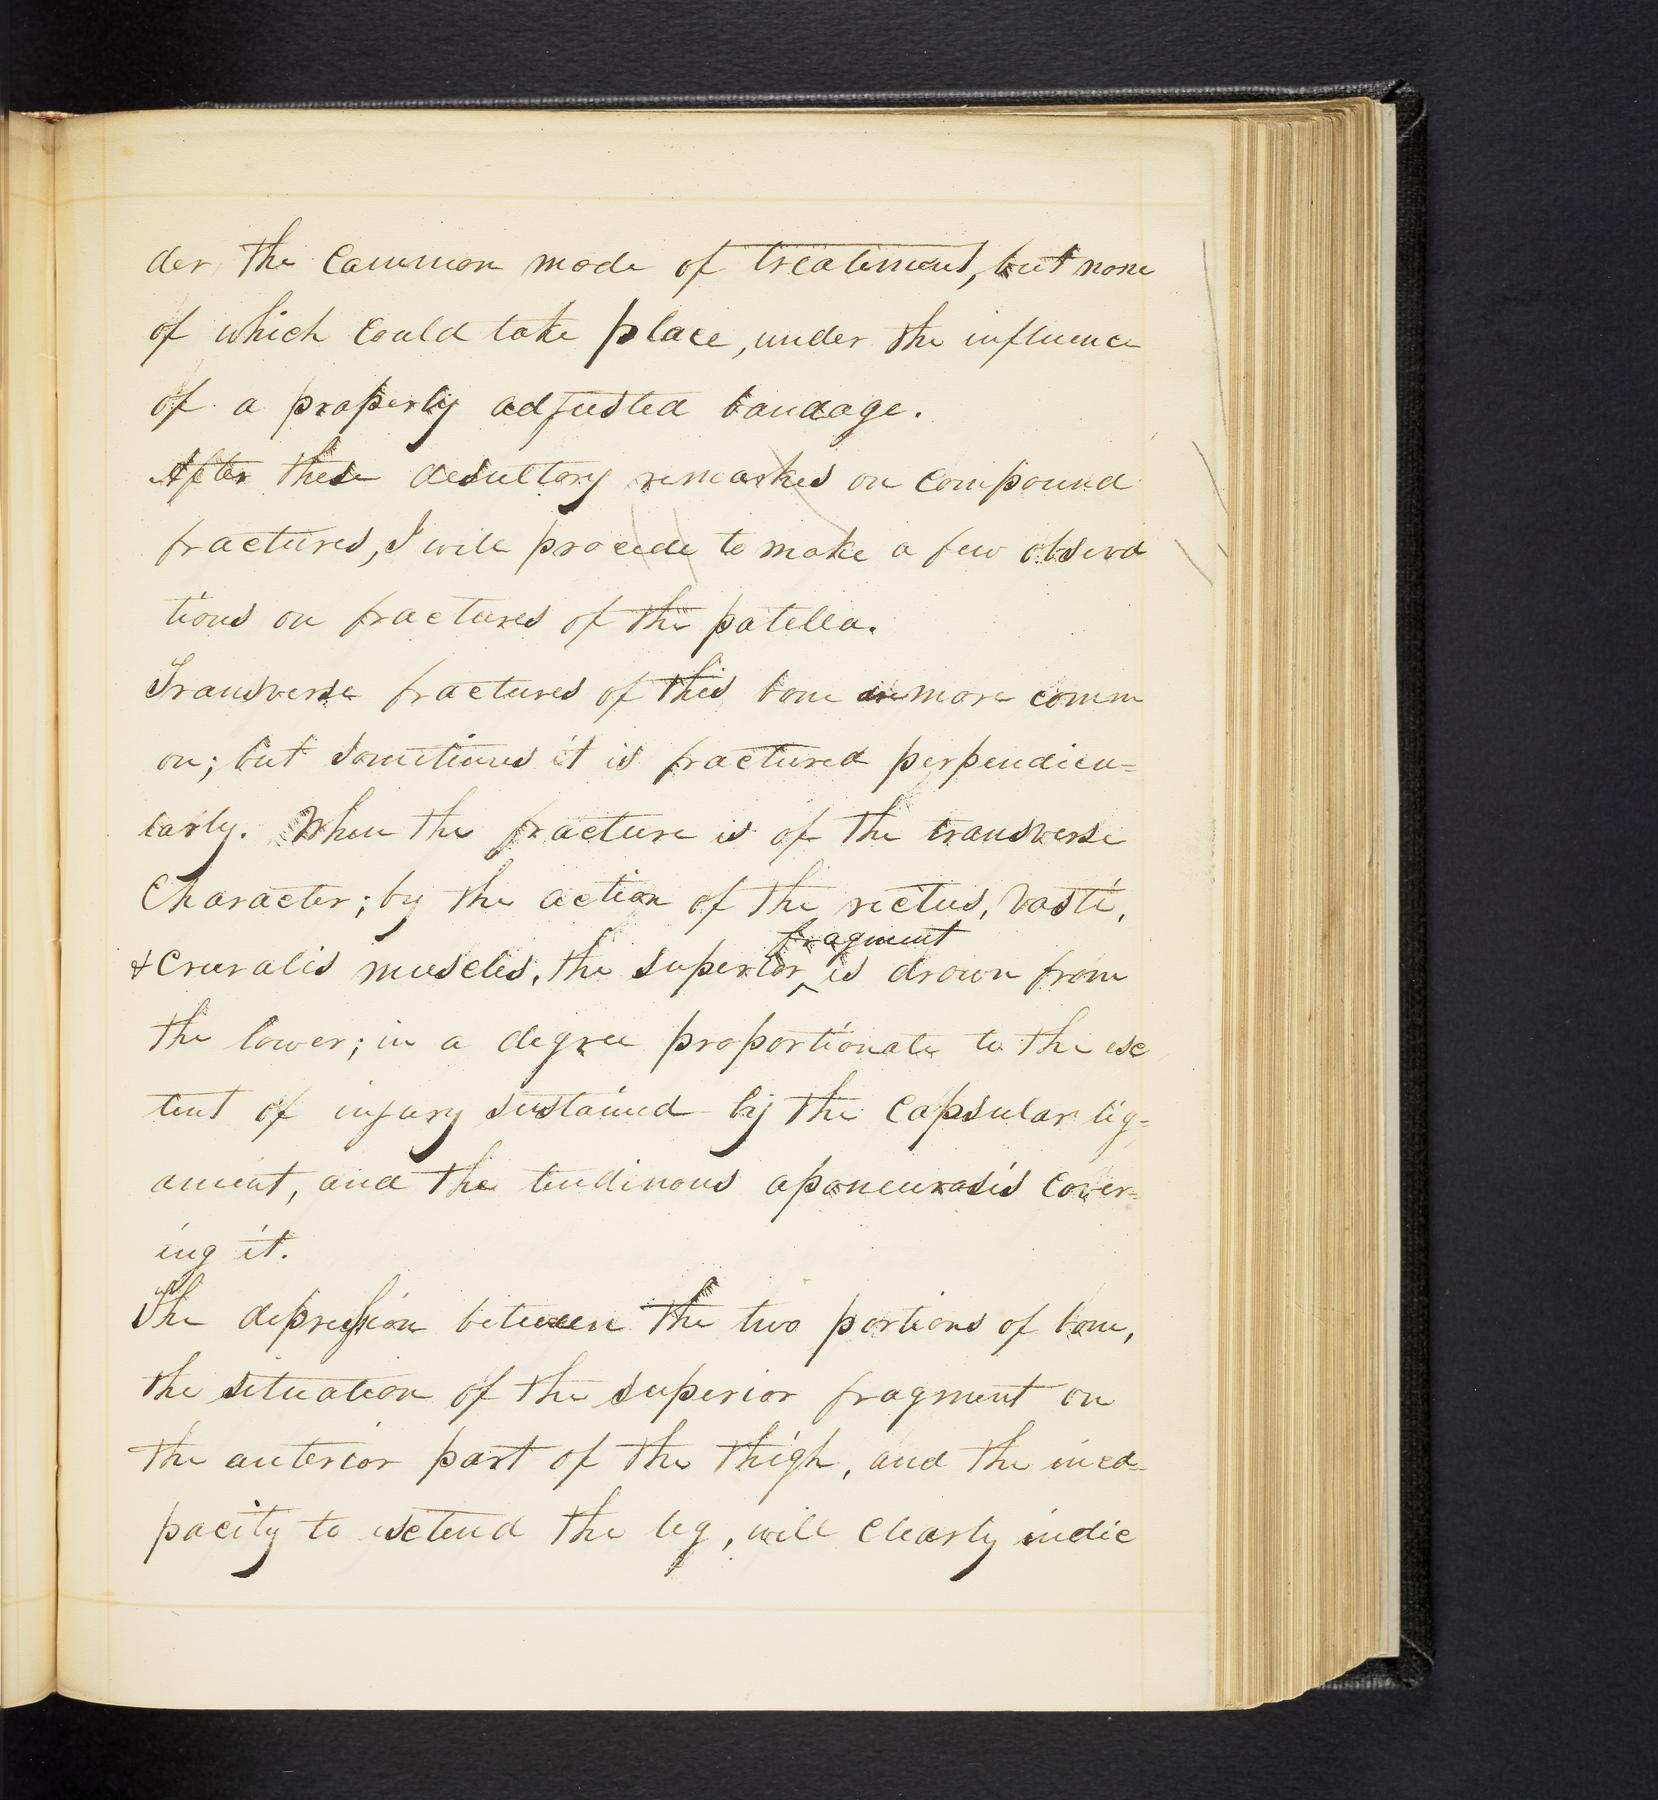 der the Common mode of treatment, but none
of which could take place, under the influence
of a properly adjusted bandage.
After these desultory remarkes on compound
fractures, I will procede to make a few observa
tions on fractures of the patella.
Transverse fractures of this bone are more comm
on; but sometimes it is fractured perpendicu=
larly. When the fracture is of the transverse
Character; by the action of the rectus, Vasti,
& Cruralis muscles, the superior ^ fragment is drawn from
the lower; in a degree proportionate to the ex
tent of injury sustained by the Capsular lig=
ament, and the tendinous aponeurosis Cover=
ing it.
The depression between the two portions of bone,
the situation of the superior fragment on
the anterior part of the thigh, and the inca=
pacity to extend the leg, will clearly indic